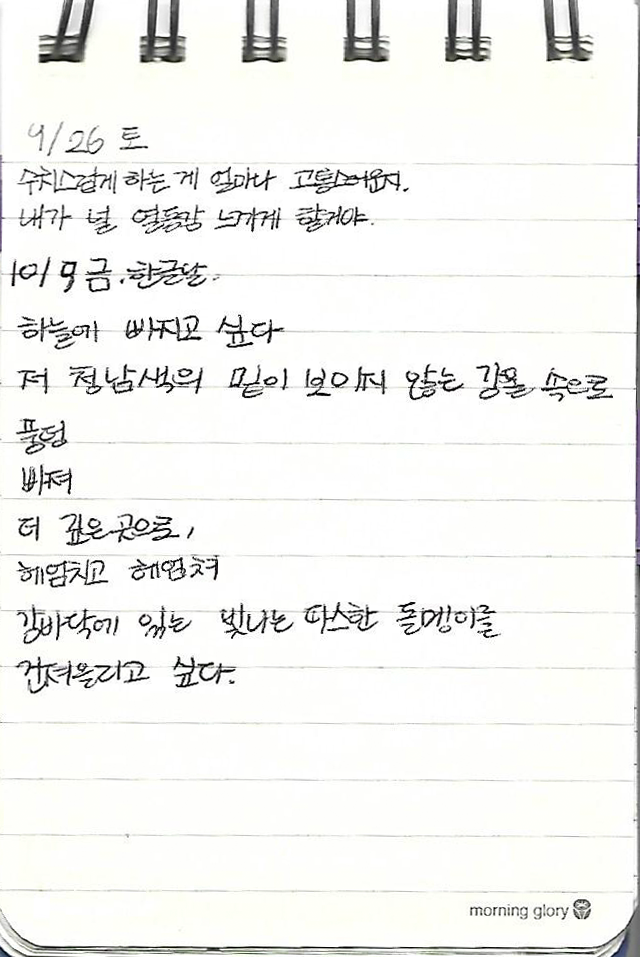 9/26 토
수치스럽게 하는 게 얼마나 고통스러운지.
내가 널 열등감 느끼게 할게야.
10/9 금. 한글날.
하늘에 빠지고 싶다
저 청남색의 밑이 보이지 않는 강물 속으로
풍덩
빠져
더 깊은 곳으로,
헤엄치고 헤엄쳐
강바닥에 있는 빛나는 따스한 돌멩이를
건져올리고 싶다.
morning glory